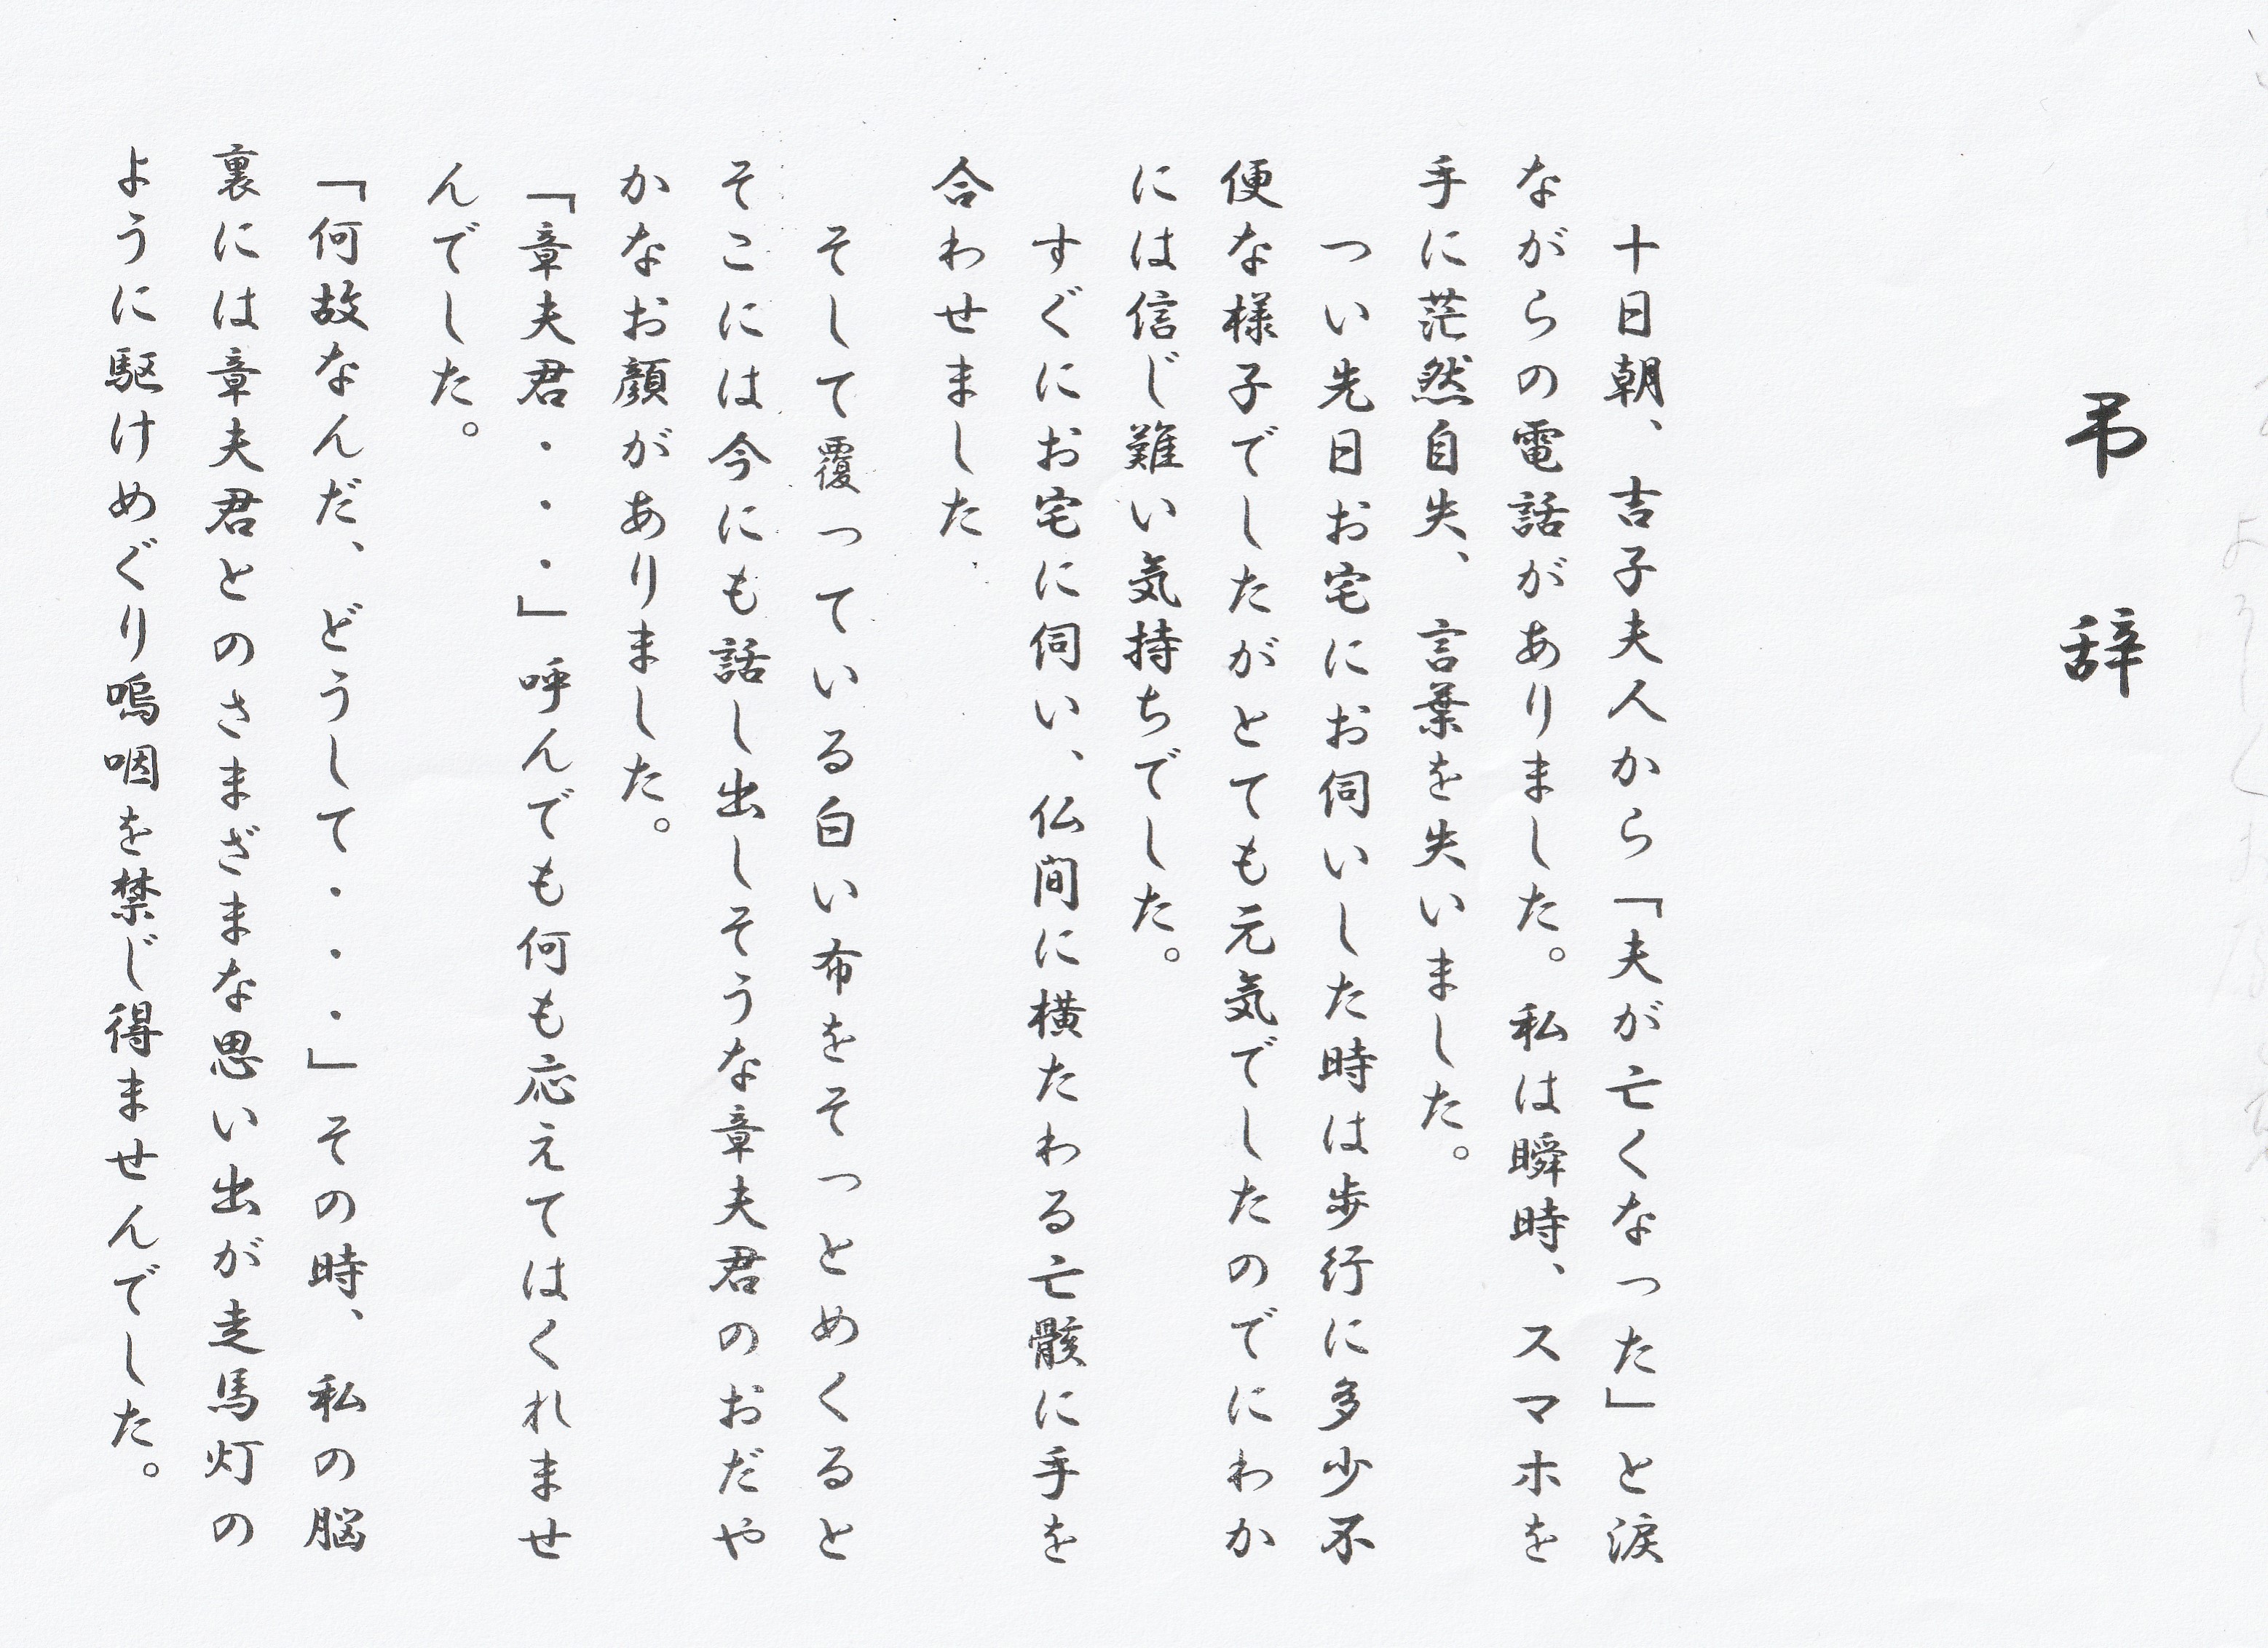 弔辞
十日朝、吉子夫人から「夫が亡くなった」と涙
ながらの電話がありました。私は瞬時、スマホを
手に茫然自失、言葉を失いました。
つい先日お宅にお伺いした時は歩行に多少不
便な様子でしたがとても元気でしたのでにわか
には信じ難い気持ちでした。
すぐにお宅に伺い、仏間に横たわる亡骸に手を
合わせました、
そして覆っている白い布をそっとめくると
そこには今にも話し出しそうな章夫君のおだや
かなお顔がありました。
「章夫君・・・」呼んでも何も応えてはくれませ
んでした。
「何故なんだ、どうして・・・」その時、私の脳
裏には章夫君とのさまざまな思い出が走馬灯の
ように駆けめぐり嗚咽を禁じ得ませんでした。